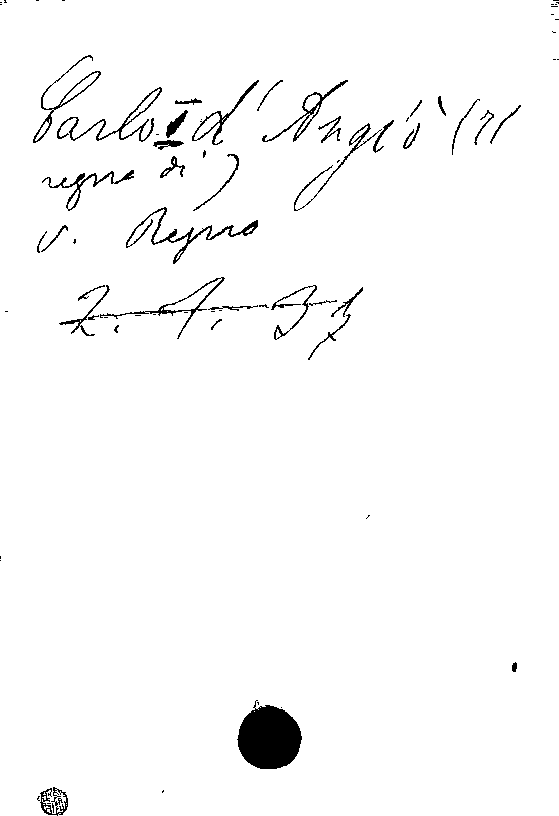 Carlo I d'Angiò (Il
regno di)
v. Regno
Z. 1. 33